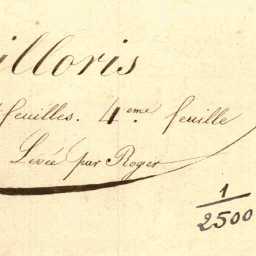 illoris
feuilles. 4.eme feuille
Levée par Roger
1
2500